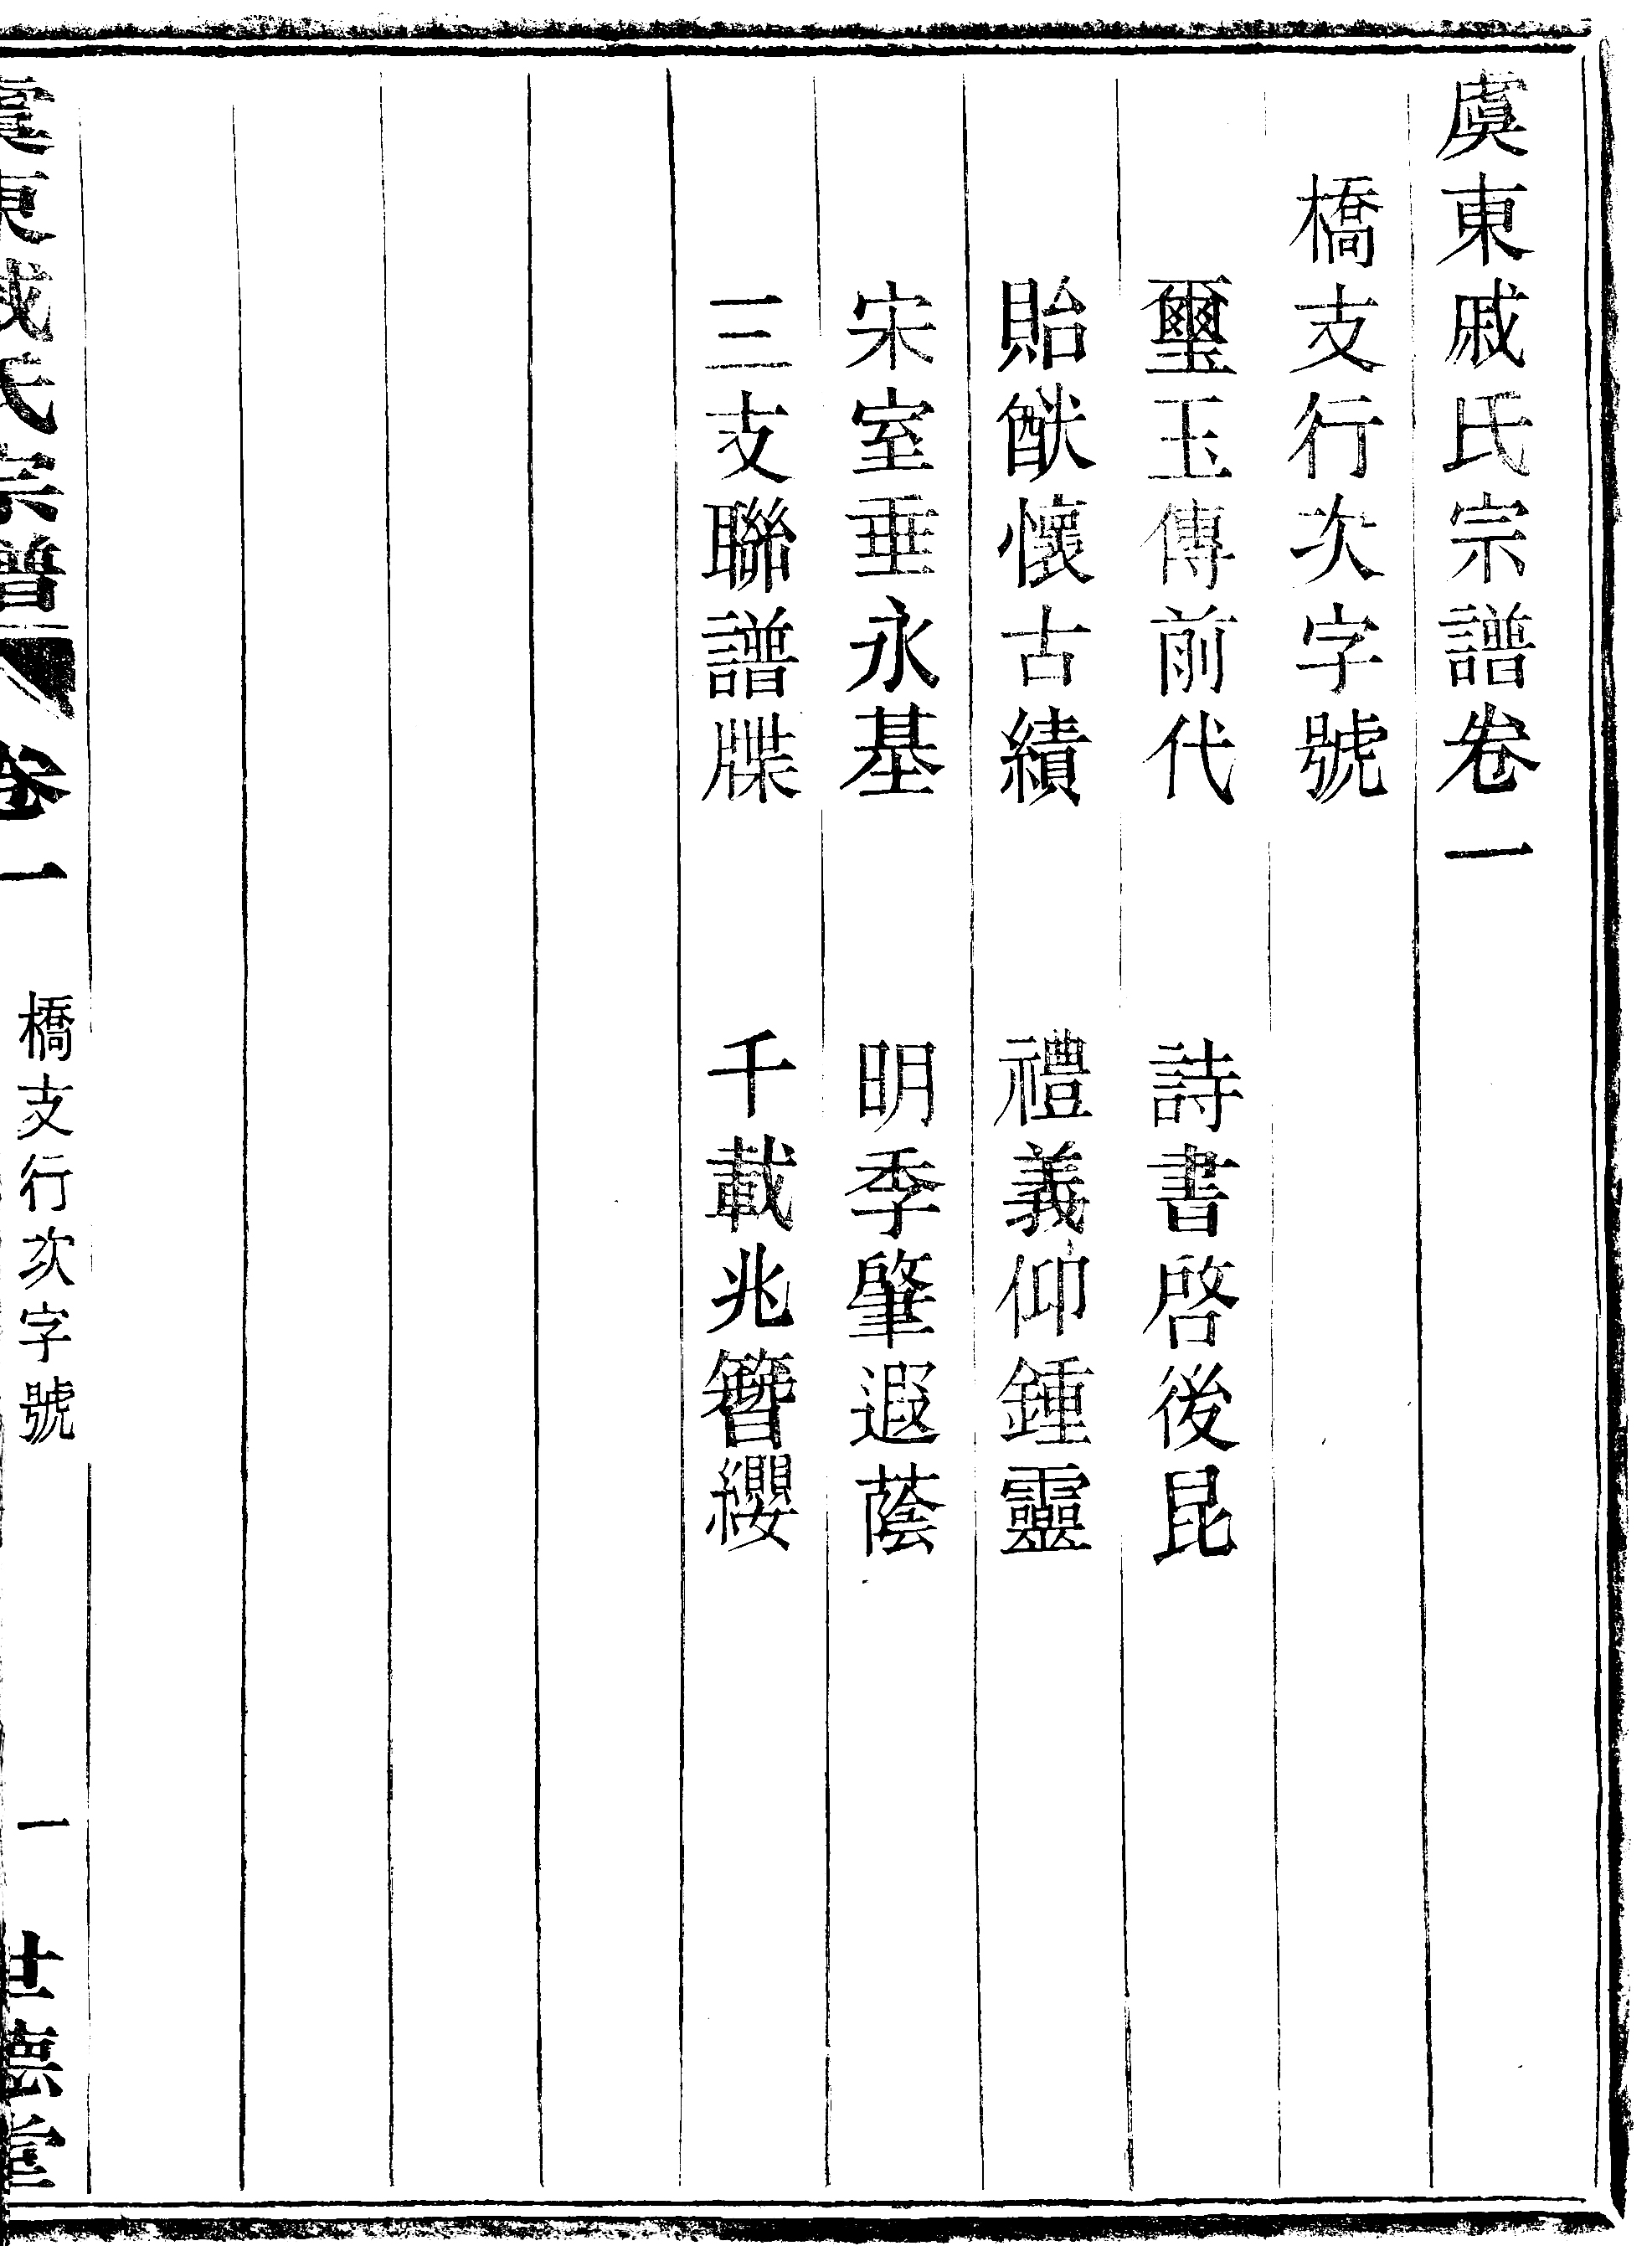 虞東戚氏宗譜卷一
橋支行次字號
璽玉傳前代　詩書啓後昆
貽猷懷古績　禮義仰鍾靈
宋室垂永基　明季肇遐蔭
三支聯譜牒　千載兆簪纓
虞東戚氏宗譜　卷一　橋支行次字號　一　世德堂